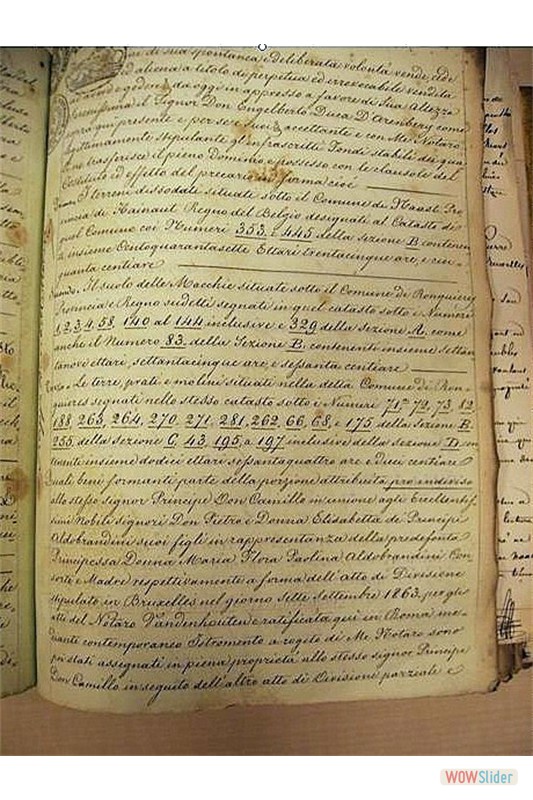 ne di sua spontanea e deliberata volontà vende, cede
ed aliena a titolo di perpetua ed irrevocabile vendita
da oggi in appresso a favore di Sua Altezza
Serenissima il Signor Don Engelberto Duca D'Arenberg come
sopra qui presente e per se e suoi accettante e con Me Notaro
legittimamente stipulante gl'infrascritti Fondi stabili dei qua
li ne trasferisce il pieno Dominio e possesso con le clausole del
Costituto ed effetto del precario in forma cioè
Primo. I terreni dissodati situati sotto il Comune di Naast Pro
vincia di Hainaut Regno del Belgio designati al Catasto di
quel Comune coi Numeri 353. e 445 della sezione B contenen
ti insieme Centoquarantasette Ettari trentacinque are, e cin-
quanta centiare
Secundo. Il suolo delle Macchie situate sotto il Comune di Ronquieres
Provincia e Regno sudetti segnati in quel catasto sotto i Numeri
1, 2, 3, 4, 58, 140 al 144 inclusive e 329 della sezione A. come
anche il Numero 83. della Sezione B. contenenti insieme settan
tanove ettari, settantacinque are, e sessanta centiare
Terzo. Le terre, prati e molini situati nella detta Comune di Ron-
quieres segnati nello stesso catasto sotto i Numeri 71, 72, 73, 82
188, 263, 264, 270, 271, 281, 262, 66, 68, e 175 della sezione B.
255, della sezione C, 43, 195, a 197 inclusive della sezione D. con
tenenti insieme dodici ettari sessantaquattro are e dieci centiare
Quali beni formanti parte della porzione attribuita pro indiviso
allo stesso signor Principe Don Camillo in unione agli Eccellentis
simi Nobili signori Don Pietro e Donna Elisabetta de' Principi
Aldobrandini suoi figli in rappresentanza della predefonta
Principessa Donna Maria Flora Paolina Aldobrandini Con
sorte e Madre respettivamente a forma dell'Atto di Divisione
stipulato in Bruxelles nel giorno sette Settembre 1863. per gli
atti del Notaro Vandenhouten e ratificata qui in Roma me-
diante contemporaneo Istromento a rogito di Me Notaro sono
poi stati assegnati in piena proprietà allo stesso signor Principe
Don Camillo in seguito dell'altro atto di Divisione parziale e
WOWSlider